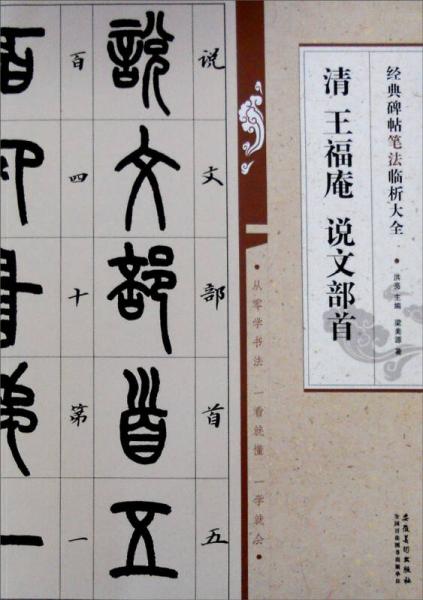 经典碑帖笔法临析大全
洪亮 主编 梁美源 著
清 王福庵 说文部首
安徽美术出版社
全国百佳图书出版单位
从零学书法 一看就懂 一学就会
说文部首五
說文部首五
百四十第一
百
一